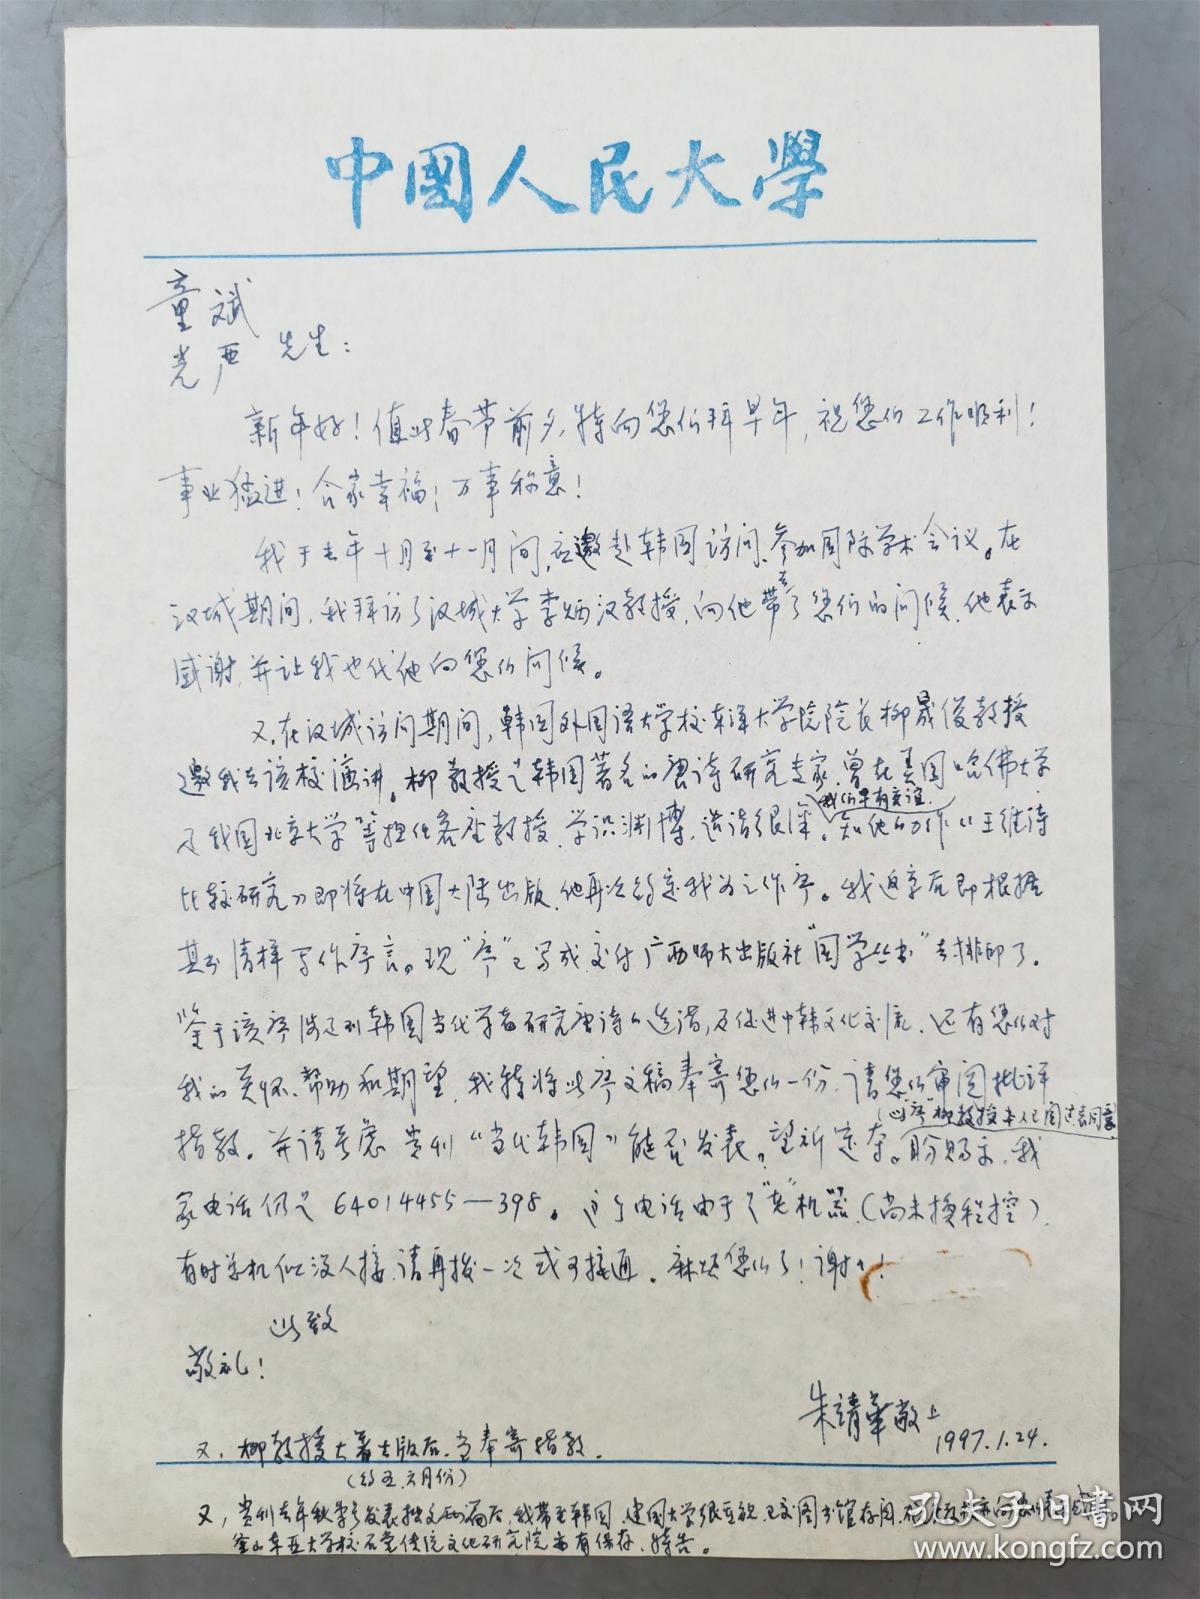 中國人民大學
童斌
光严 先生：
新年好！值此春节前夕，特向您们拜早年，祝您们工作顺利！
事业猛进！合家幸福！万事称意！
我于去年十月至十一月间，应邀赴韩国访问、参加国际学术会议。在
汉城期间，我拜访了汉城大学李炳汉教授，向他带去了您们的问候，他表示
感谢，并让我也代他向您们问候。
又，在汉城访问期间，韩国外国语大学校东洋大学院院长柳晟俊教授
邀我去该校演讲。柳教授是韩国著名的唐诗研究专家，曾在美国哈佛大学
及我国北京大学等担任客座教授，学识渊博，造诣很深。我们早有交谊。知他的力作《王维诗
比较研究》即将在中国大陆出版，他再次约定我为之作序。我返京后即根据
其书清样写作序言。现“序”已写成，交付广西师大出版社“国学丛书”去排印了。
鉴于该序涉及到韩国当代学者研究唐诗的造诣，及促进中韩文化交流，还有您们对
我的关怀、帮助和期望，我特将此序文稿奉寄您们一份，请您们审阅批评
指教。并请考虑贵刊“当代韩国”能否发表？望祈定夺。（此“序”柳教授本人已阅过表同意）盼赐示，我
家电话仍是64014455—398。这个电话由于是“老”机器（尚未换程控），
有时总机似没人接，请再拨一次或可接通。麻烦您们了！谢谢！
此致
敬礼！
朱靖华敬上
1997.1.24.
又，柳教授大著出版后，当奉寄指教。
（约五、六月份）
又，贵刊去年秋季号发表拙文两篇后，我带至韩国，建国大学很重视，已交图书馆存阅，
釜山东亚大学校石堂传统文化研究院亦有保存，特告。
孔夫子旧书网
www.kongfz.com